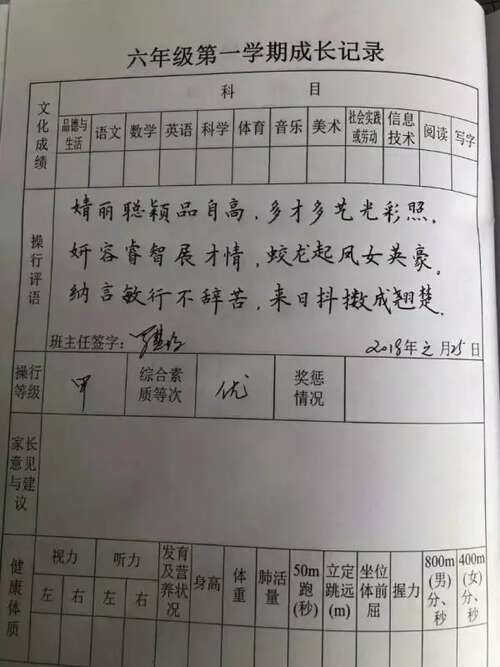 六年级第一学期成长记录
科 目
文化成绩
品德与生活 语文 数学 英语 科学 体育 音乐 美术 社会实践或劳动 信息技术 阅读 写字
操行评语
婧丽聪颖品自高，多才多艺光彩照。
妍容睿智展才情，蛟龙起凤女英豪。
纳言敏行不辞苦，来日抖擞成翘楚.
班主任签字：
2018年元月25日
操行等级 甲 综合素质等次 优 奖惩情况
家长意见与建议
健康体质
视力 听力 发育及营养状况 身高 体重 肺活量 50m跑(秒) 立定跳远(m) 坐位体前屈 握力 800m(男)分、秒 400m(女)分、秒
左 右 左 右